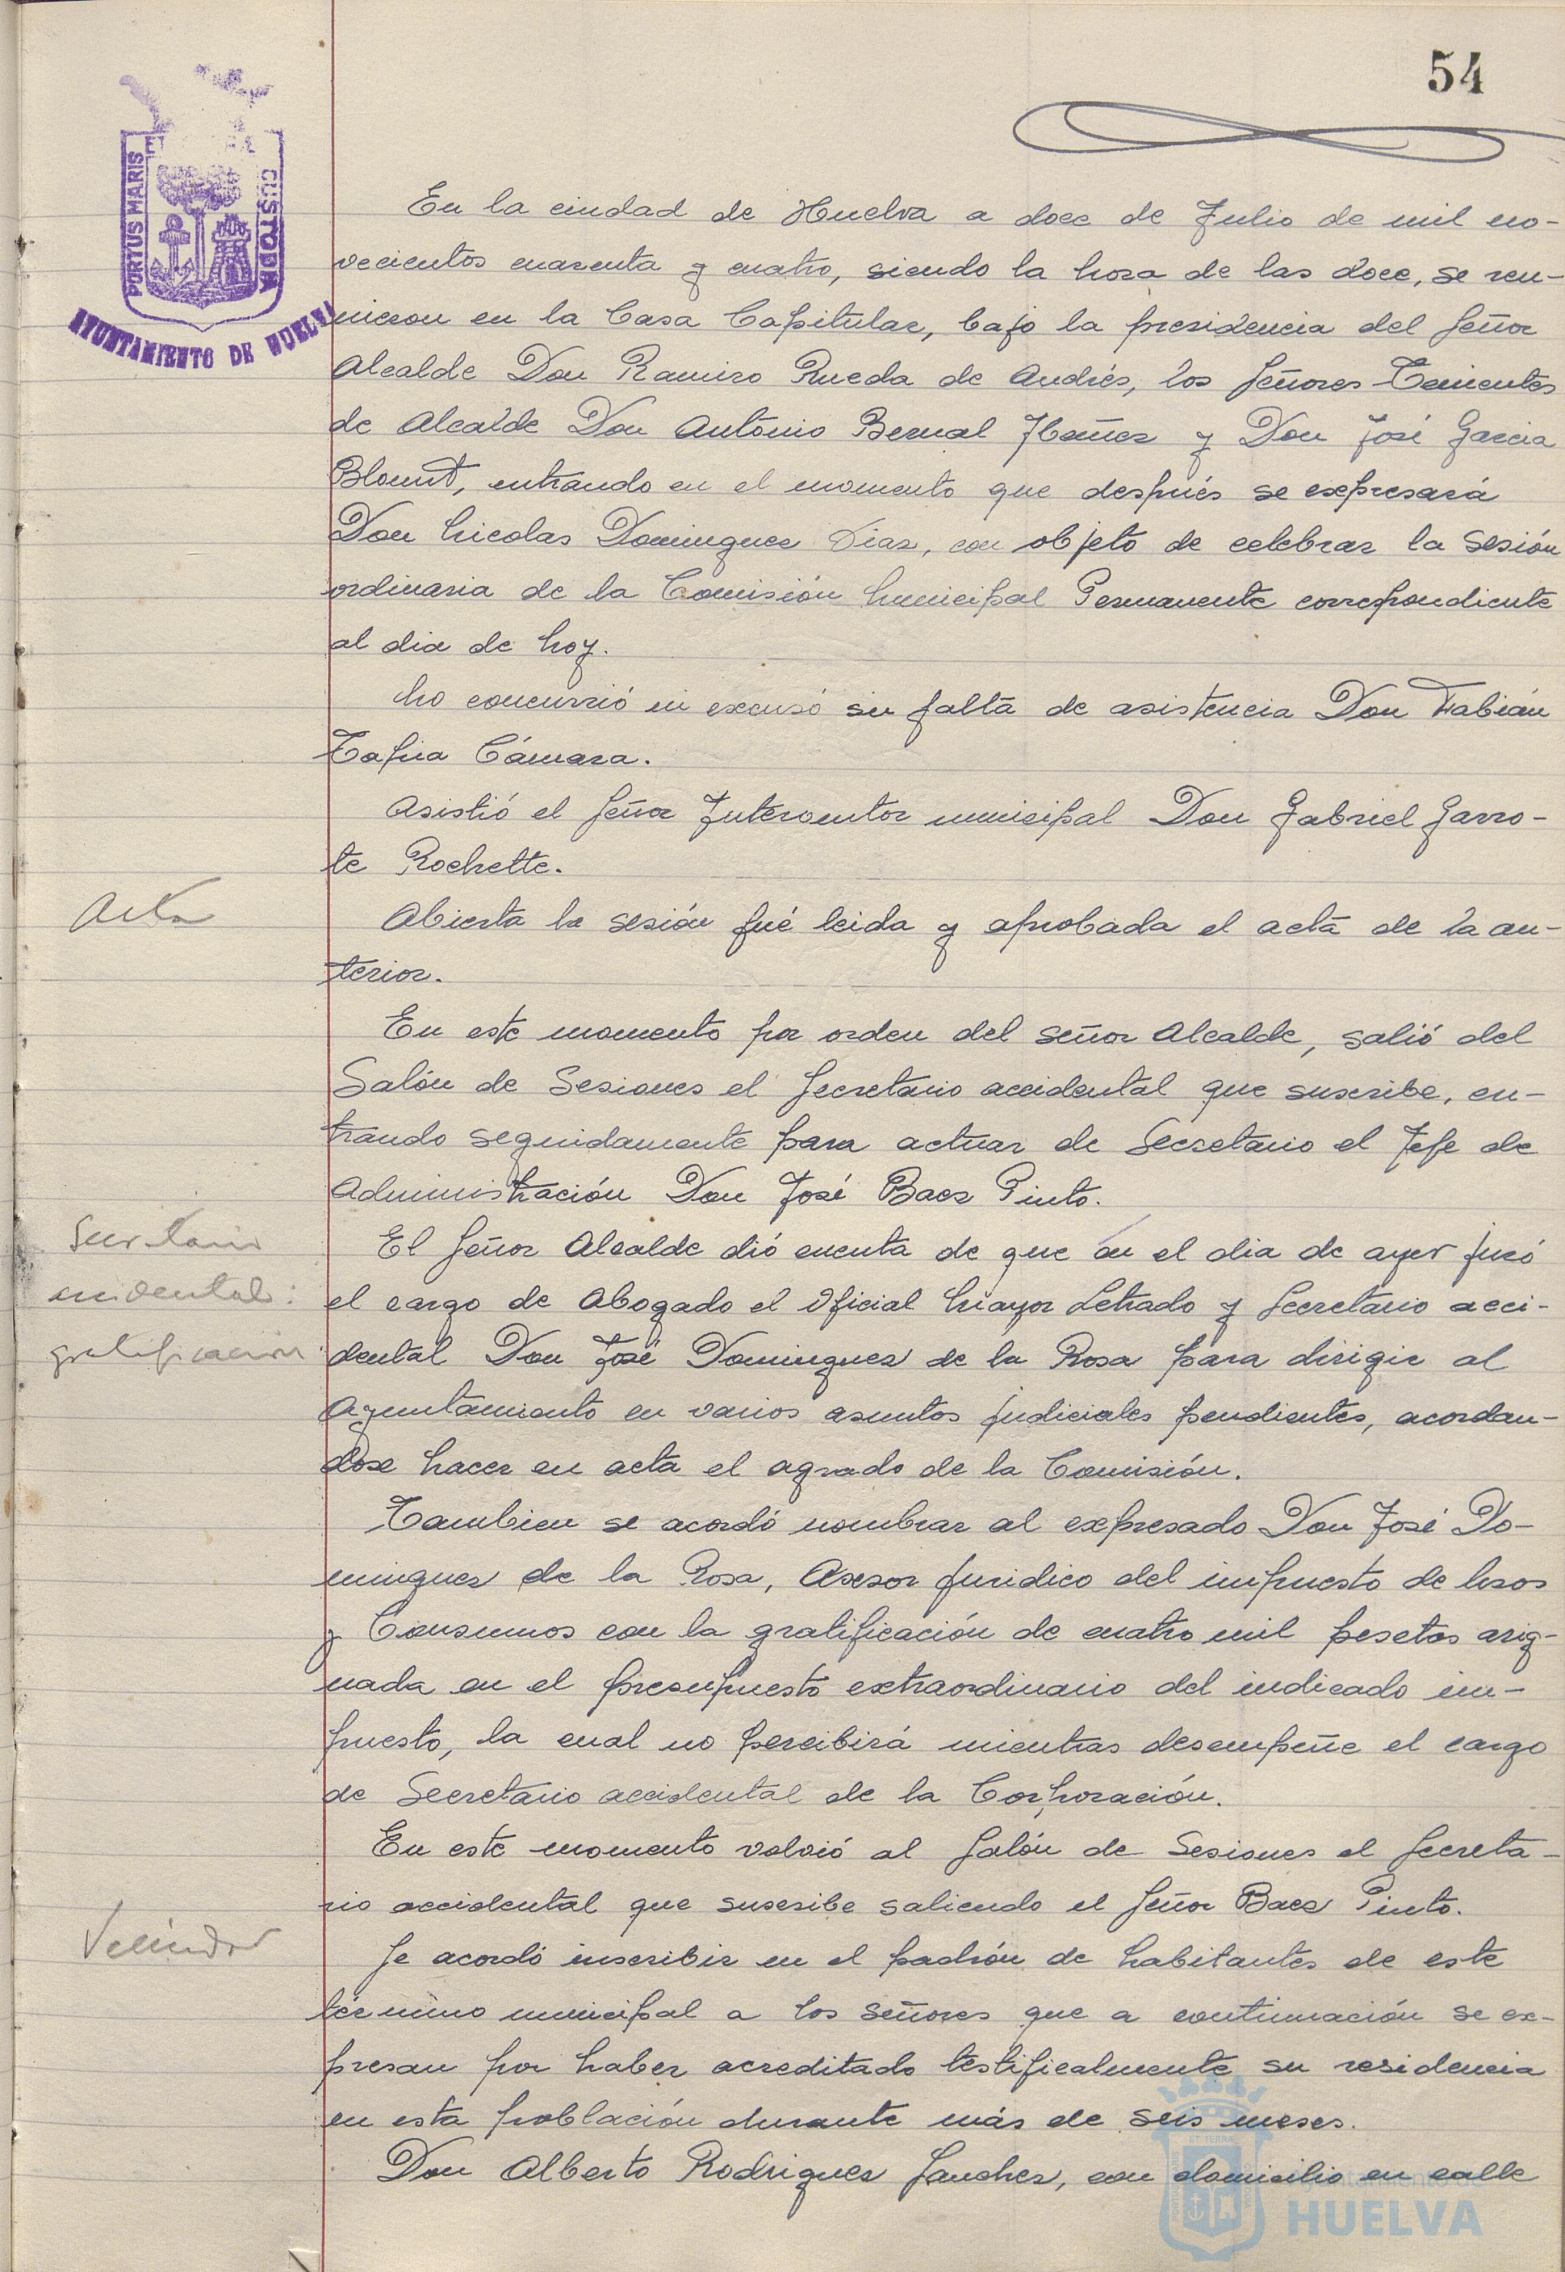 54
PORTUS MARIS
ET
CUSTODIA
AYUNTAMIENTO DE HUELVA
En la ciudad de Huelva a doce de Julio de mil no-
vecientos cuarenta y cuatro, siendo la hora de las doce, se reu-
nieron en la Casa Capitular, bajo la presidencia del Señor
Alcalde Don Ramiro Rueda de Andrés, los Señores Tenientes
de Alcalde Don Antonio Bernal Ibañez y Don José Garcia
Blount, entrando en el momento que después se expresará
Don Nicolas Dominguez Diaz, con objeto de celebrar la sesión
ordinaria de la Comisión Municipal Permanente correspondiente
al dia de hoy.
No concurrió ni excusó su falta de asistencia Don Fabián
Tapia Cámara.
Asistió el Señor Interventor municipal Don Gabriel Garro-
te Rochette.
Acta
Abierta la sesión fué leida y aprobada el acta de la an-
terior.
En este momento por orden del señor Alcalde, salió del
Salón de Sesiones el Secretario accidental que suscribe, en-
trando seguidamente para actuar de Secretario el Jefe de
Administración Don José Baez Pinto.
Secretario
accidental:
gratificacion
El Señor Alcalde dió cuenta de que en el dia de ayer juró
el cargo de Abogado el Oficial Mayor Letrado y Secretario acci-
dental Don José Dominguez de la Rosa para dirigir al
Ayuntamiento en varios asuntos judiciales pendientes, acordan-
dose hacer en acta el agrado de la Comisión.
Tambien se acordó nombrar al expresado Don José Do-
minguez de la Rosa, Asesor Juridico del impuesto de Usos
y Consumos con la gratificación de cuatro mil pesetas asig-
nada en el presupuesto extraordinario del indicado im-
puesto, la cual no percibirá mientras desempeñe el cargo
de Secretario accidental de la Corporación.
En este momento volvió al Salón de Sesiones el Secreta-
rio accidental que suscribe saliendo el Señor Baez Pinto.
Vecindad
Se acordó inscribir en el padrón de habitantes de este
término municipal a los señores que a continuación se ex-
presan por haber acreditado testificalmente su residencia
en esta población durante más de seis meses.
Don Alberto Rodriguez Sanchez, con domicilio en calle
Ayuntamiento de
HUELVA